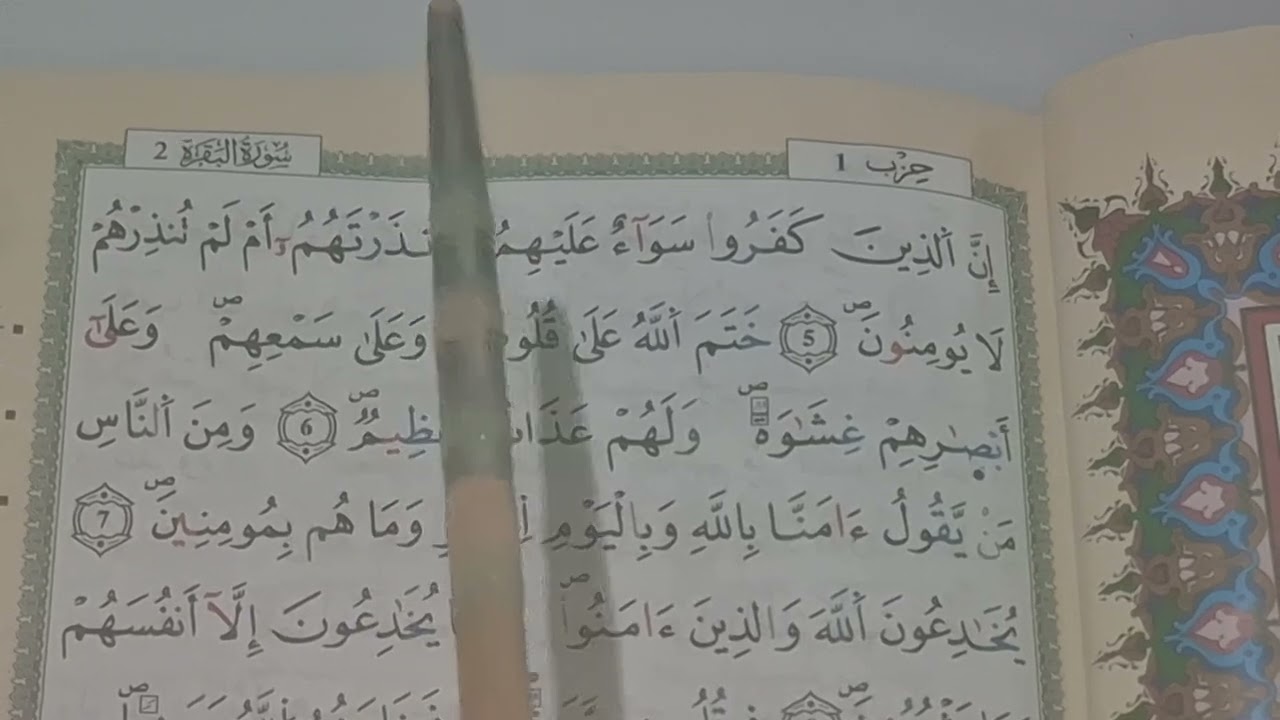 حِزْب 1
سُورَةُ الْبَقَرَةِ 2
إِنَّ اَ۬لذِينَ كَفَرُوا سَوَآءٌ عَلَيْهِمُ أَمْ لَمْ تُنذِرْهُمْ
لَا يُومِنُونَۖ 5 خَتَمَ اَ۬للَّهُ عَلَىٰ وَعَلَىٰ سَمْعِهِمْۖ وَعَلَىٰٓ
أَبْصَٰرِهِمْ غِشَٰوَةٞۖ وَلَهُمْ 6 وَمِنَ اَ۬لنَّاسِ
مَنْ يَّقُولُ ءَامَنَّا بِاللَّهِ وَبِالْيَوْمِ وَمَا هُم بِمُومِنِينَۖ 7
يُخَٰدِعُونَ اَ۬للَّهَ وَالذِينَ ءَامَنُواۖ يُخَٰدِعُونَ إِلَّآ أَنفُسَهُمْ